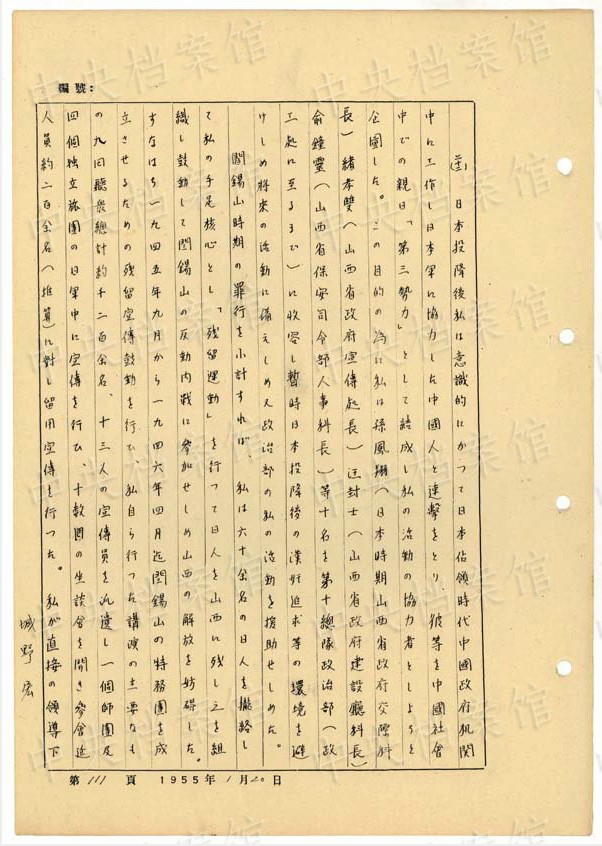 編號:
日本投降後私は意識的にかつて日本佔領時代中國政府机関
中に工作し日本軍に協力した中國人と連撃をとり、彼等を中國社会
中での親日「第三勢力」として結成し私の活動の協力者としようと
企圖した。この目的の為に私は孫鳳翔(日本時期山西省政府交際科
長)緒孝雙(山西省政府宣傳処長)封士(山西省政府建設廳科長)
俞鐘霊(山西省保安司令部人事科長)等十名を第十總隊政治部(政
工処に至るまで)に收容し暫時日本投降後の漢奸追求等の環境を避
けしめ將來の活動に備えしめ又政治部の私の活動を援助せしめた。
閻錫山時期の罪行を小計すれば、私は六十余名の日人を撒絡し
て私の手足核心とし「残留運動」を行って日人を山西に残し之を組
織し鼓動して閻錫山の反動内戦に参加せしめ山西の解放を妨碍した。
すなはち一九四五年九月から一九四六年四月迄閻錫山の特務團を成
立させるための残留宣傳鼓動を行ひ、私自ら行った講演の主要なも
の九回聽衆總計約千二百余名、十三人の宣傳員を派遣し一個師團及
四個独立旅團の日軍中に宣傳を行ひ、十数囘の坐談会を開き参会近
人員約二百余名(推算)に対し留用宣傳を行った。私が直接の領導下
城野宏
第 111 頁 1955年 1月 20日
中央档案馆